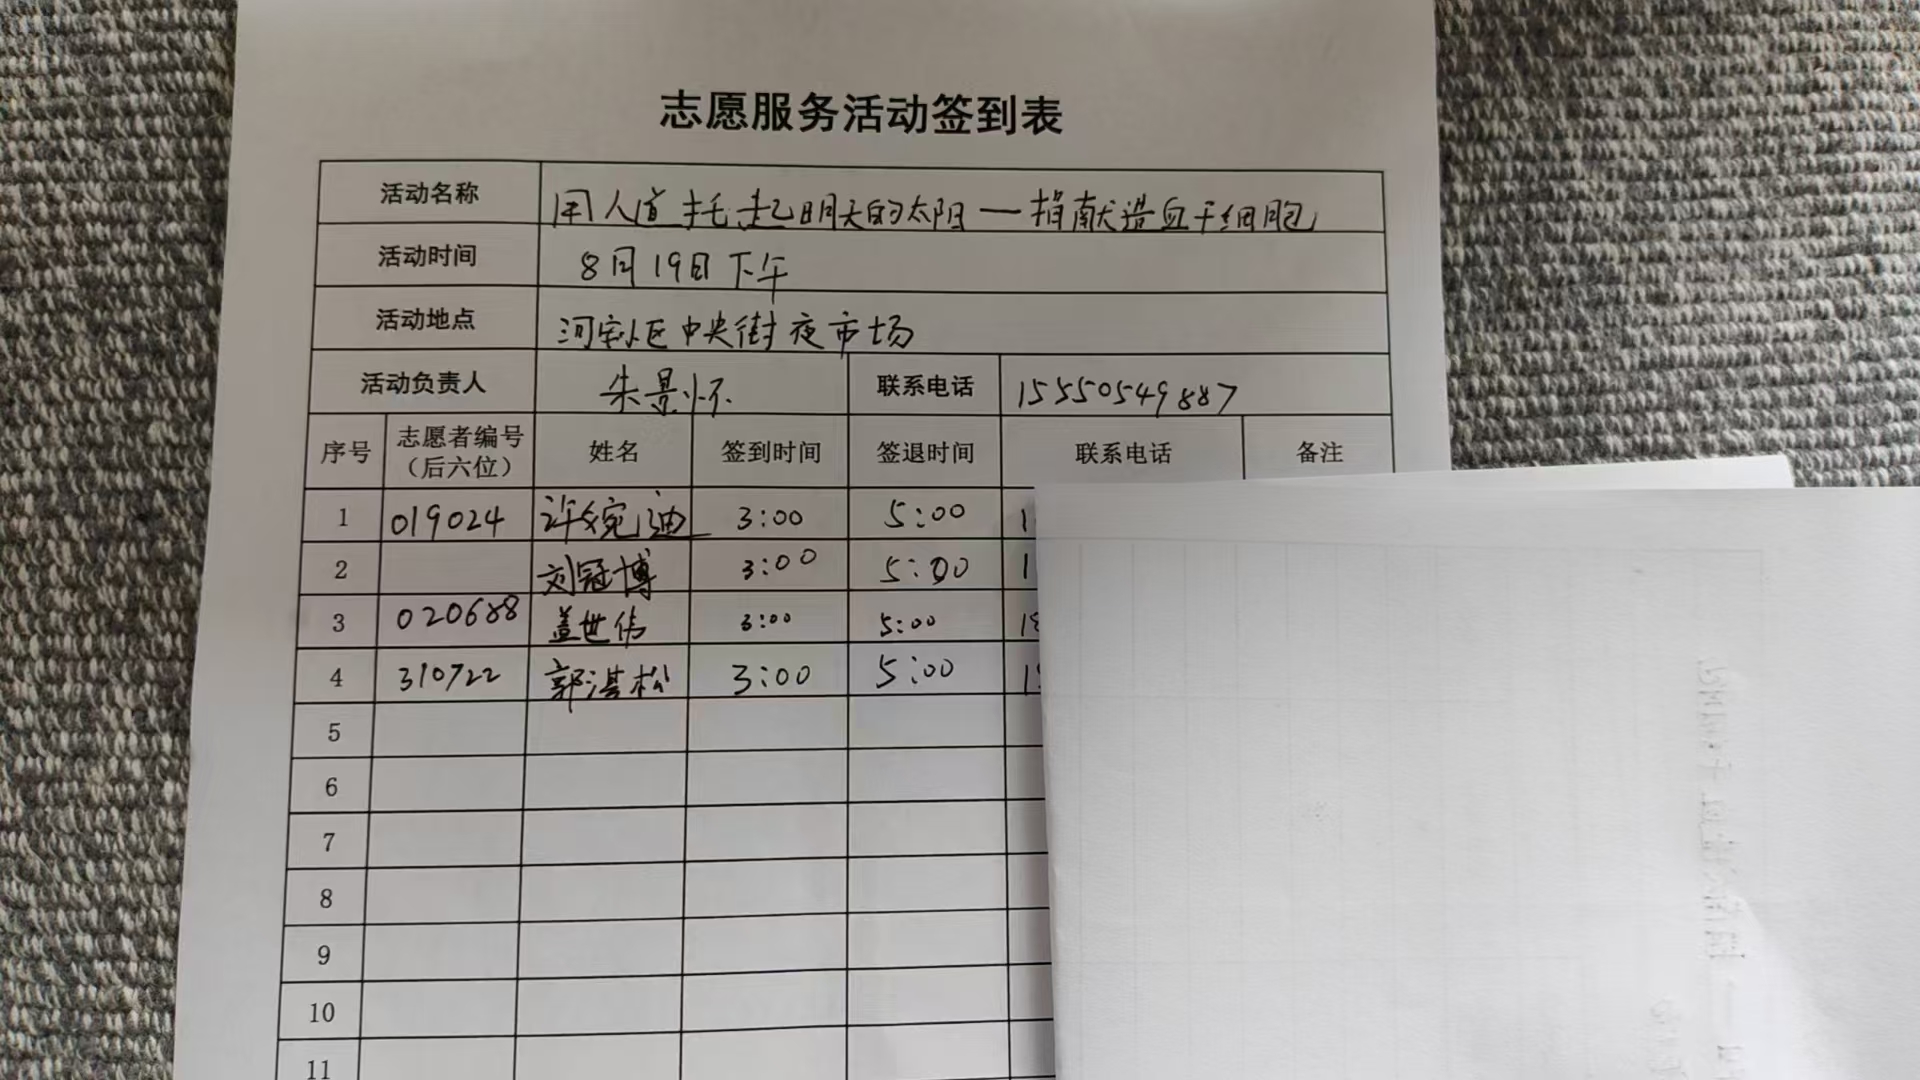 志愿服务活动签到表
活动名称 用人道托起明天的太阳—捐献造血干细胞
活动时间 8月19日下午
活动地点 河东区中央街夜市场
活动负责人 朱景怀 联系电话 15550549887
序号 志愿者编号（后六位） 姓名 签到时间 签退时间 联系电话 备注
1 019024 许婉迪 3:00 5:00 1
2 刘冠博 3:00 5:00 1
3 020688 盖世伟 3:00 5:00 18
4 310722 郭淇松 3:00 5:00 1
5
6
7
8
9
10
11